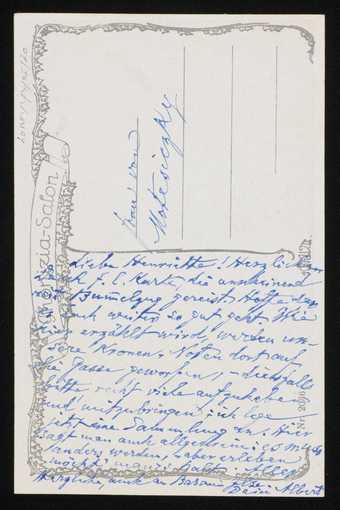 Amonzia-Salon
Frau von
Motesiczky
Liebe Henriette! Herzlichen
Dank f. l. Karte, die anscheinend
mit Bummelzug gereist. Hoffe dass
Euch weiter so gut geht. Wie
hier erzählt wird, werden un-
sere Kronen-Noten dort auf
die Gasse geworfen, – diesfalls
bitte recht viele aufzuheben
und mitzubringen; ich lege
jetzt eine Sammlung an. Hier
sagt man auch allgemein: es muss
anders werden, aber erleben
möcht' man's halt. Alles
Herzliche, auch an
Dein Albert
Nr. 2016